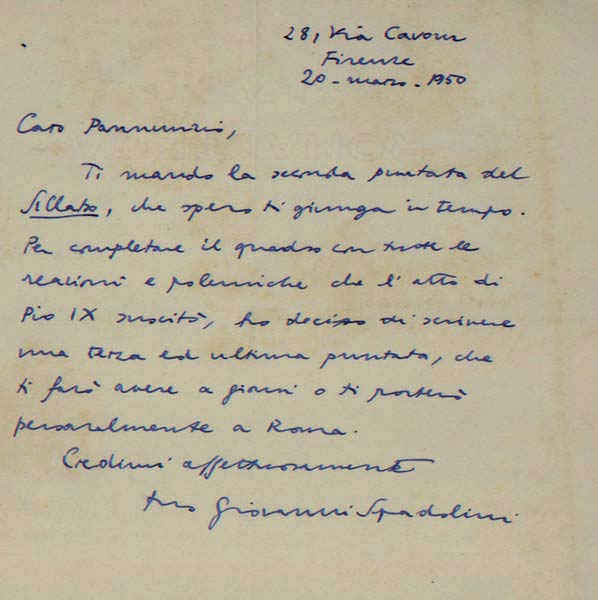 28, Via Cavour
Firenze
20 - marzo - 1950
Caro Pannunzio,
Ti mando la seconda puntata del
Sillabo, che spero ti giunga in tempo.
Per completare il quadro con tutte le
reazioni e polemiche che l'atto di
Pio IX suscitò, ho deciso di scrivere
una terza ed ultima puntata, che
ti farò avere a giorni o ti porterò
personalmente a Roma.
Credimi affettuosamente
tuo Giovanni Spadolini